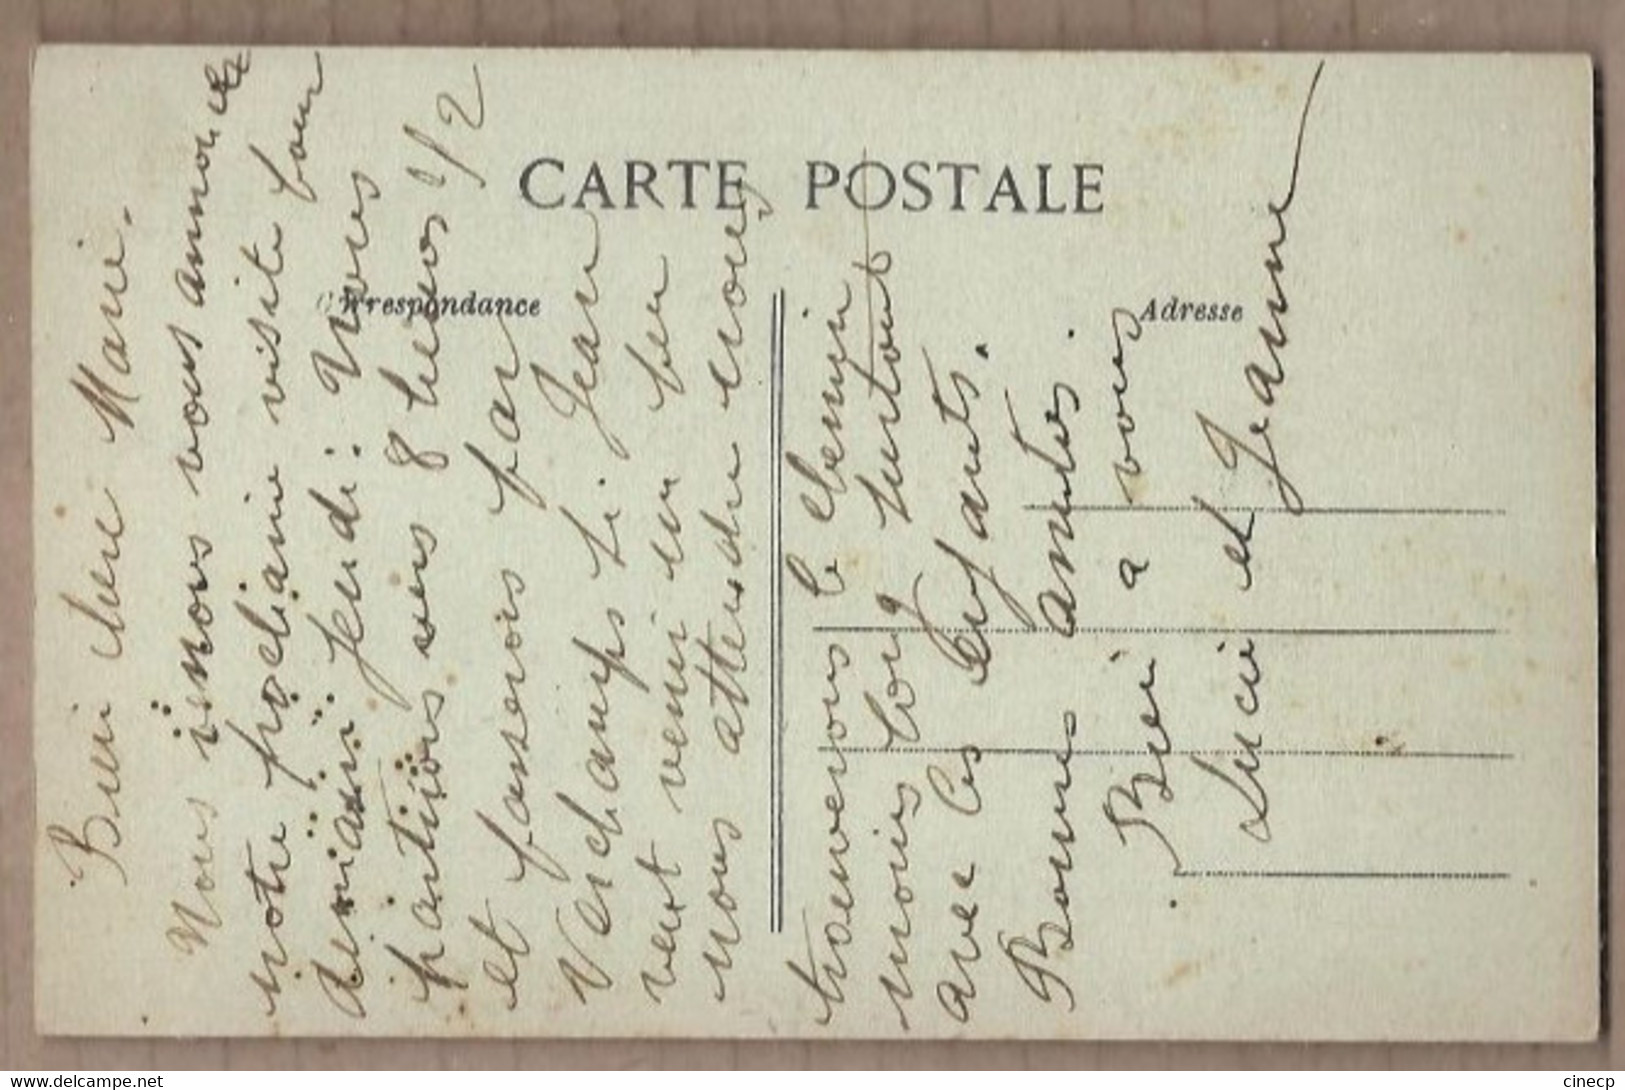 CARTE POSTALE
Correspondance
Adresse
Bien chère Marie.
Nous vous annonce
notre prochaine visite pour
Jeudi: Nous
partirons vers 8 heures 1/2
et passerois par
Verchamps Si Jean
veut venir un peu
nous attendre nous
trouverons le chemin
moins long surtout
avec les enfants.
Bonnes amités.
Bien a vous
Lucie et Jeanne
cinecp